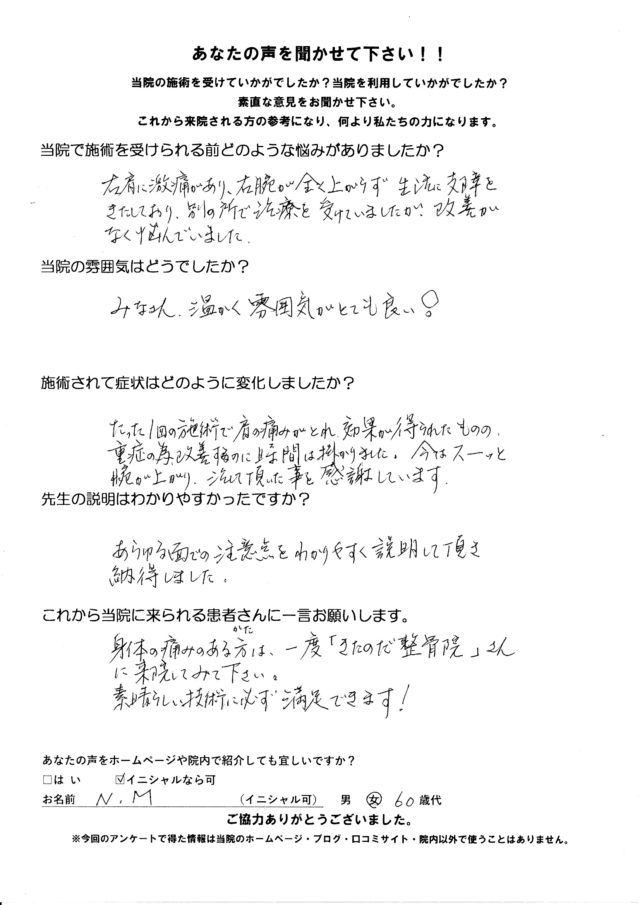 あなたの声を聞かせて下さい！！
当院の施術を受けていかがでしたか？当院を利用していかがでしたか？
素直な意見をお聞かせ下さい。
これから来院される方の参考になり、何より私たちの力になります。
当院で施術を受けられる前どのような悩みがありましたか？
右肩に激痛があり、右腕が全く上がらず 生活に支障を
きたしており、別の所で治療を受けていましたが、改善が
なく悩んでいました.
当院の雰囲気はどうでしたか？
みなさん、温かく雰囲気がとても良い！
施術されて症状はどのように変化しましたか？
たった1回の施術で肩の痛みがとれ、効果が得られたものの、
重症の為改善するのに時間は掛かりました。今はスーッと
腕が上がり、治して頂いた事を感謝しています.
先生の説明はわかりやすかったですか？
あらゆる面での注意点をわかりやすく説明して頂き
納得しました。
これから当院に来られる患者さんに一言お願いします。
身体の痛みのある方(かた)は、一度「きたのだ整骨院」さん
に来院してみて下さい。
素晴らしい技術に必ず満足できます！
あなたの声をホームページや院内で紹介しても宜しいですか？
□はい ☑イニシャルなら可
お名前 N.M （イニシャル可） 男 女 60歳代
ご協力ありがとうございました。
※今回のアンケートで得た情報は当院のホームページ・ブログ・口コミサイト・院内以外で使うことはありません。